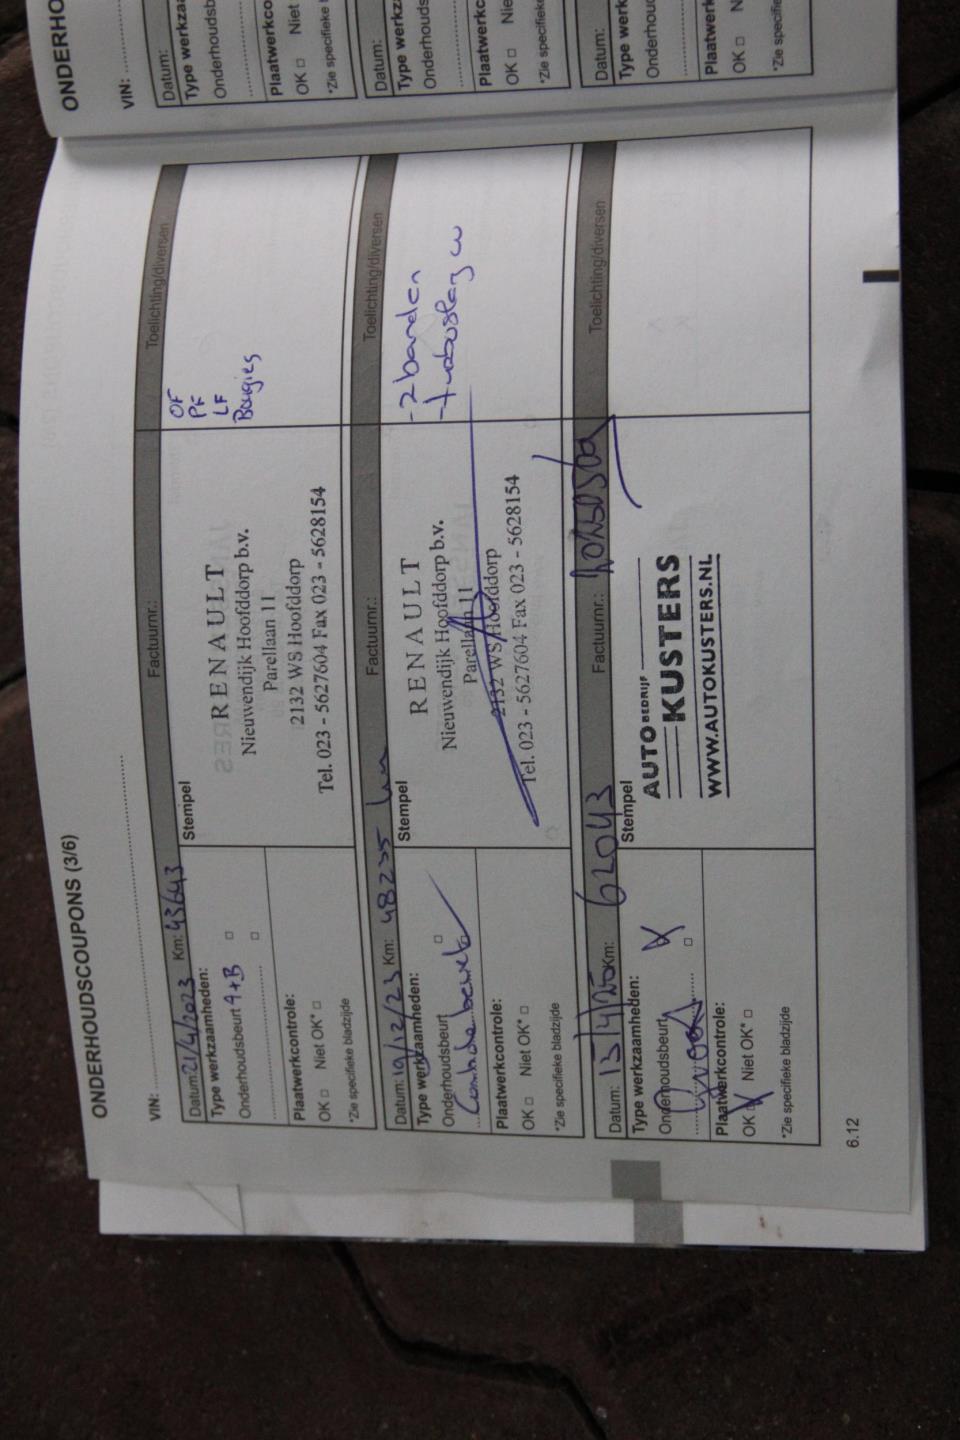 ONDERHOUDSCOUPONS (3/6)
VIN:
Datum: 21/4/2023 Km: 43643 Factuurnr.: Toelichting/diversen
Type werkzaamheden:
Onderhoudsbeurt A+B
Plaatwerkcontrole:
OK Niet OK*
*Zie specifieke bladzijde
Stempel
RENAULT
Nieuwendijk Hoofddorp b.v.
Parellaan 11
2132 WS Hoofddorp
Tel. 023 - 5627604 Fax 023 - 5628154
OF
PF
LF
Bougies
Datum: 19/12/23 Km: 48255 km Factuurnr.: Toelichting/diversen
Type werkzaamheden:
Onderhoudsbeurt
Plaatwerkcontrole:
OK Niet OK*
*Zie specifieke bladzijde
Stempel
RENAULT
Nieuwendijk Hoofddorp b.v.
Parellaan 11
2132 WS Hoofddorp
Tel. 023 - 5627604 Fax 023 - 5628154
- 2 banden
Datum: 15/4/25 Km: 62043 Factuurnr.: Toelichting/diversen
Type werkzaamheden:
Onderhoudsbeurt
Groot
Plaatwerkcontrole:
OK Niet OK*
*Zie specifieke bladzijde
Stempel
AUTOBEDRIJF
KUSTERS
WWW.AUTOKUSTERS.NL
6.12
ONDERHO
VIN:
Datum:
Type werkzaa
Onderhoudsb
Plaatwerkco
OK Niet
*Zie specifieke
Datum:
Type werkz
Onderhoud
Plaatwerkc
OK Nie
*Zie specifieke
Datum:
Type werk
Onderhoud
Plaatwerk
OK N
*Zie specifie